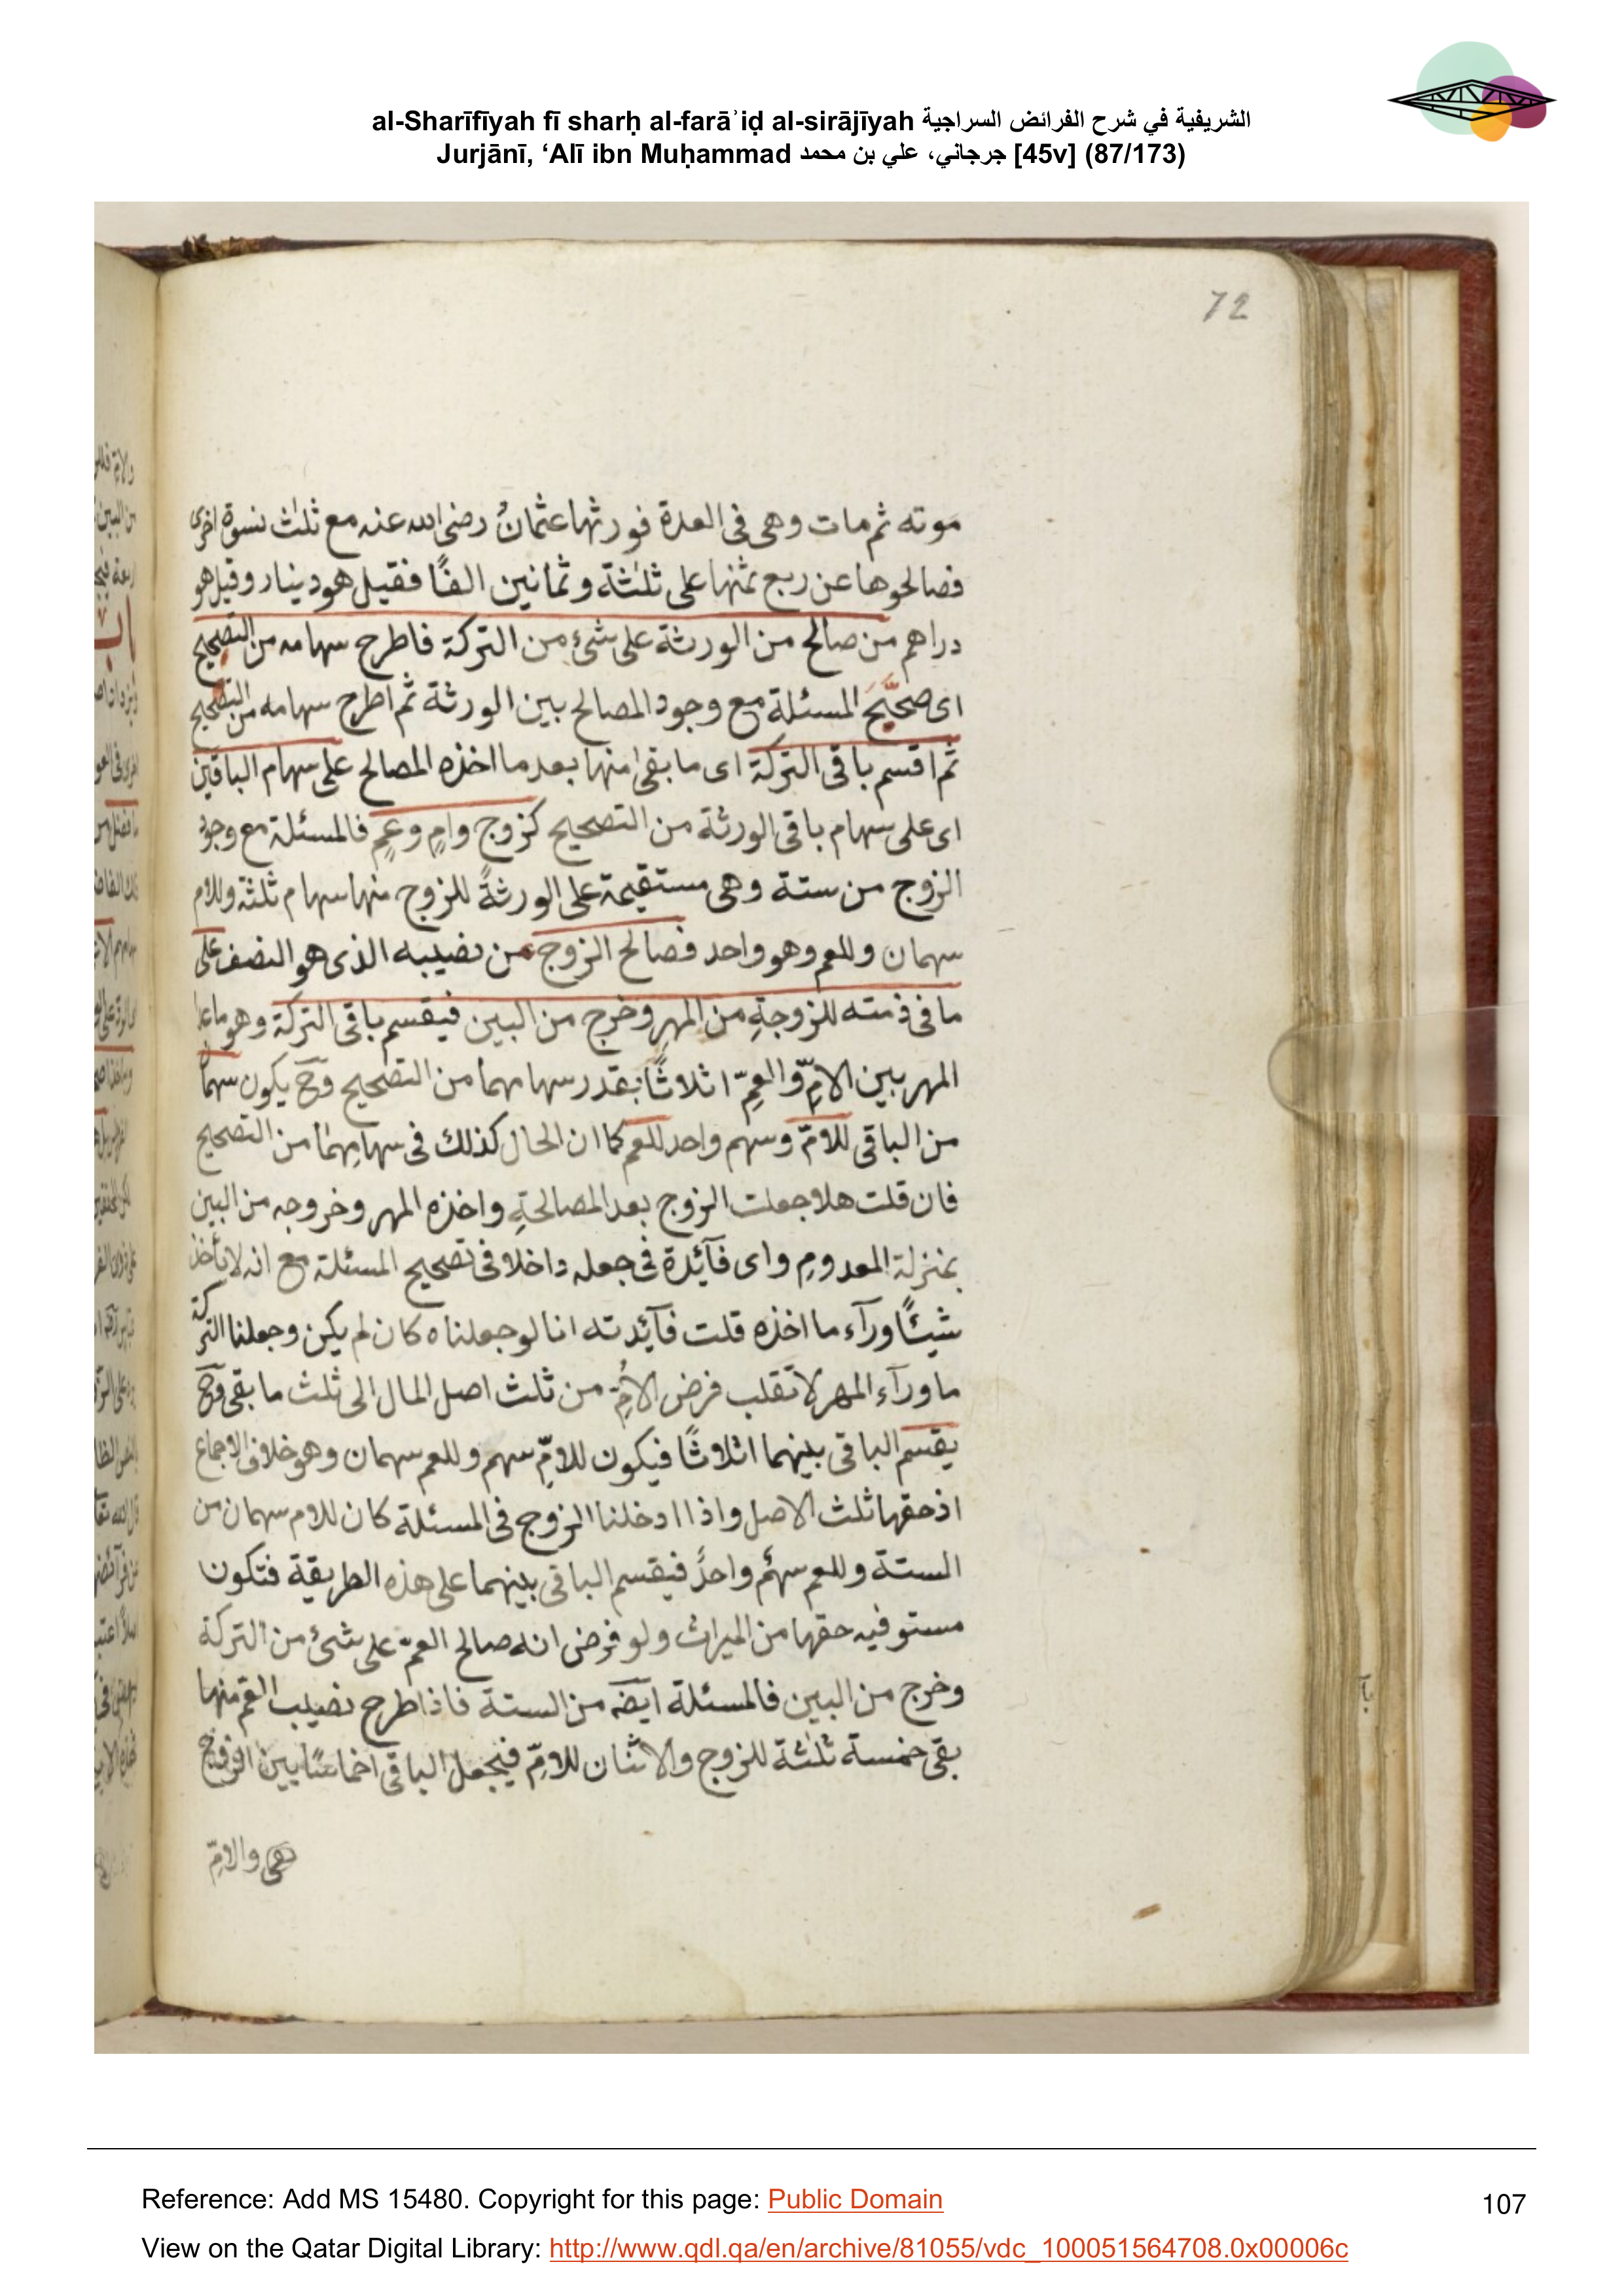 al-Sharīfīyah fī sharḥ al-farāʾiḍ al-sirājīyah الشريفية في شرح الفرائض السراجية
Jurjānī, ‘Alī ibn Muḥammad جرجاني، علي بن محمد [45v] (87/173)
72
موته ثم مات وهى فى العدة فورثها عثمانُ رضى الله عنه مع ثلث نسوة اخرى
فصالحوها عن ربع ثمنها على ثلثة وثمانين الفًا فقيل هو دينار وقيل هو
دراهم من صالح من الورثة على شئ من التركة فاطرح سهامه من التصحيح
اى صحّح المسئلة مع وجود المصالح بين الورثة ثم اطرح سهامه من التصحيح
ثم اقسم باقى التركة اى ما بقى منها بعد ما اخذه المصالح على سهام الباقين
اى على سهام باقى الورثة من التصحيح كزوج وامٍ وعمٍ فالمسئلة مع وجود
الزوج من ستة وهى مستقيمة على الورثة للزوج منها سهام ثلثة وللام
سهمان وللعم وهو واحد فصالح الزوج من نصيبه الذى هو النصف على
ما فى ذمته للزوجةِ من المهرِ وخرج من البين فيقسم باقى التركة وهو ما عدا
المهر بين الامِّ والعمِّ اثلاثًا بقدر سهامهما من التصحيح وح يكون سهما
من الباقى للامّ وسهم واحد للعم كما ان الحال كذلك فى سهامِهما من التصحيح
فان قلت هلا جعلت الزوج بعد المصالحةِ واخذه المهر وخروجه من البين
بمنزلة المعدومِ واى فآئدة فى جعله داخلا فى تصحيح المسئلة مع انه لا يأخذ
شيئًا ورآء ما اخذه قلت فآئدته انا لو جعلناه كان لم يكن وجعلنا التركة
ما ورآء المهر لانقلب فرض الامِّ من ثلث اصل المال الى ثلث ما بقى وح
يقسم الباقى بينهما اثلاثًا فيكون للامِّ سهم وللعم سهمان وهو خلاف الاجماع
اذ حقها ثلث الاصل واذا ادخلنا الزوج فى المسئلة كان للام سهمان من
الستة وللعم سهمٌ واحدٌ فيقسم الباقى بينهما على هذه الطريقة فتكون
مستوفيه حقها من الميراث ولو فرض انه صالح العمّ على شئ من التركة
وخرج من البين فالمسئلة ايضه من الستة فاذا طرح نصيب العم منها
بقى خمسة ثلثة للزوج والاثنان للامِّ فيجعل الباقى اخماسًا بين الزوج
والامِّ
Reference: Add MS 15480. Copyright for this page: Public Domain
107
View on the Qatar Digital Library: http://www.qdl.qa/en/archive/81055/vdc_100051564708.0x00006c